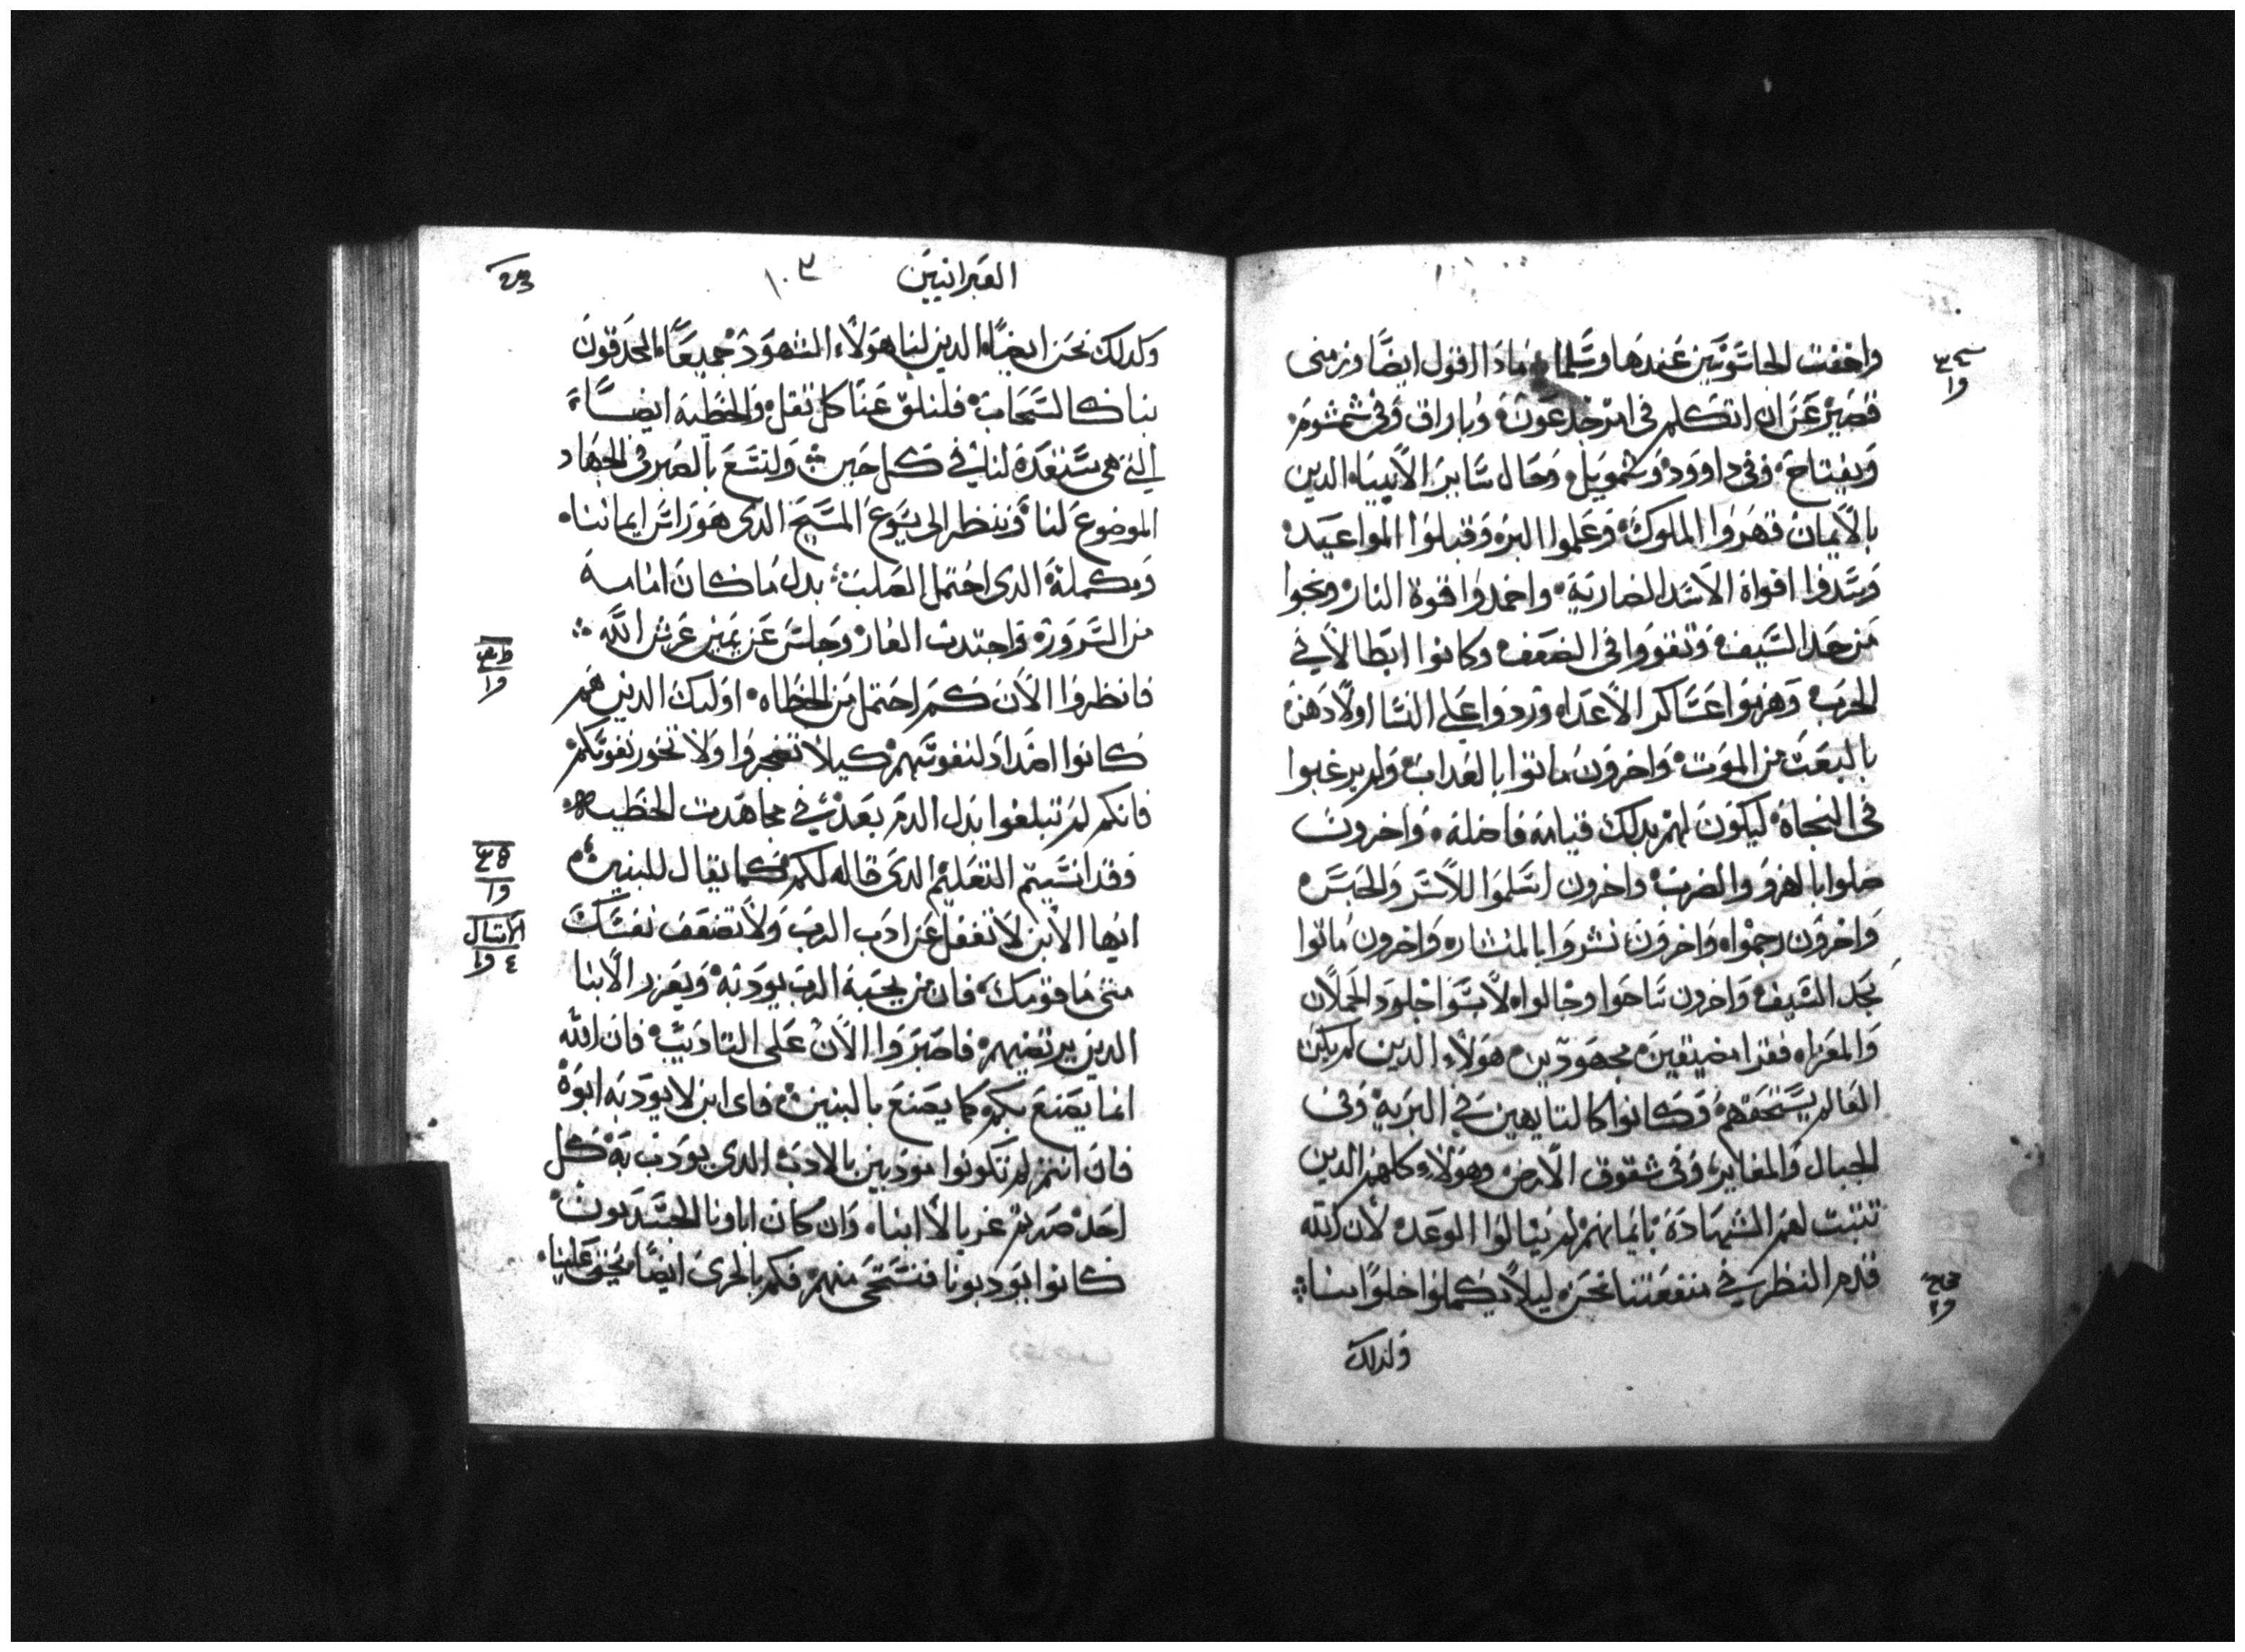 واخفت الجاسوسين عندها وسلما ماذا اقول ايضا وزمني
قصير عن ان اتكلم في امر جدعون وباراق وفي شمشوم
ويفتاح وفي داوود وشمويل وحال ساير الانبياء الدين
بالايمان قهروا الملوك وعملوا البر وقبلوا المواعيد
وسدوا افواه الاسد الضارية واخمدوا قوة النار ونجوا
من حد السيف وتقووا في الضعف وكانوا ابطالا في
الحرب وهزموا عساكر الاعداء وردوا علي النسا اولادهن
بالبعث من الموت واخرون ماتوا بالعداب ولم يرغبوا
في النجاة ليكون لهم بدلك قيامة فاضلة واخرون
صلوا بالهزو والضرب واخرون اسلموا للاسر والحبس
واخرون رجموا واخرون نشروا بالمنشار واخرون ماتوا
بحد السيف واخرون ساحوا وجالوا لابسوا جلود الحملان
والمعزاء فقرا مضيقين مجهودين هولاء الدين لم يكن
العالم يستحقهم وكانوا كالتايهين في البرية وفي
الجبال والمغاير وفي شقوق الارض وهولاء كلهم الدين
تثبت لهم الشهادة بايمانهم لم ينالوا الوعد لان الله
قدم النظر في منفعتنا نحن ليلا يكملوا خلوا منا
ولدلك
العبرانيين
١٠٣
وكدلك نحن ايضا الدين لنا هولاء الشهود جميعا المحدقون
بنا كالسحاب فلنلق عنا كل ثقل والخطية ايضا
التي هي مستعدة لنا في كل حين ولنسع بالصبر في الجهاد
الموضوع لنا وننظر الى يسوع المسيح الدي هو راس ايماننا
ومكمله الدي احتمل الصلب بدل ما كان امامه
من السرور واجتدب العار وجلس عن يمين عرش الله
فانظروا الان كم احتمل من الخطاه اوليك الدين هم
كانوا اضدادا لنفوسهم كيلا تضجروا ولا تخور نفوسكم
فانكم لم تبلغوا بدل الدم بعد في مجاهدت الخطيه
وقد انسيتم التعليم الدي قاله لكم كما يقال للبنين
ايها الابن لا تغفل عن ادب الرب ولا تضعف نفسك
متى ما قومك فان من يحبه الرب يودبه ويعزر الابنا
الدين يرتضيهم فاصبروا الان على التاديب فان الله
انما يصنع بكم كما يصنع بالبنين فاي ابن لا يودبه ابوه
فان انتم لم تكونوا مودبين بالادب الدي يودب به كل
احد صرتم غربا لا ابناء وان كان اباونا الجسديون
كانوا يودبونا فنستحي منهم فكم بالحري ايضا يجب علينا
الامثال